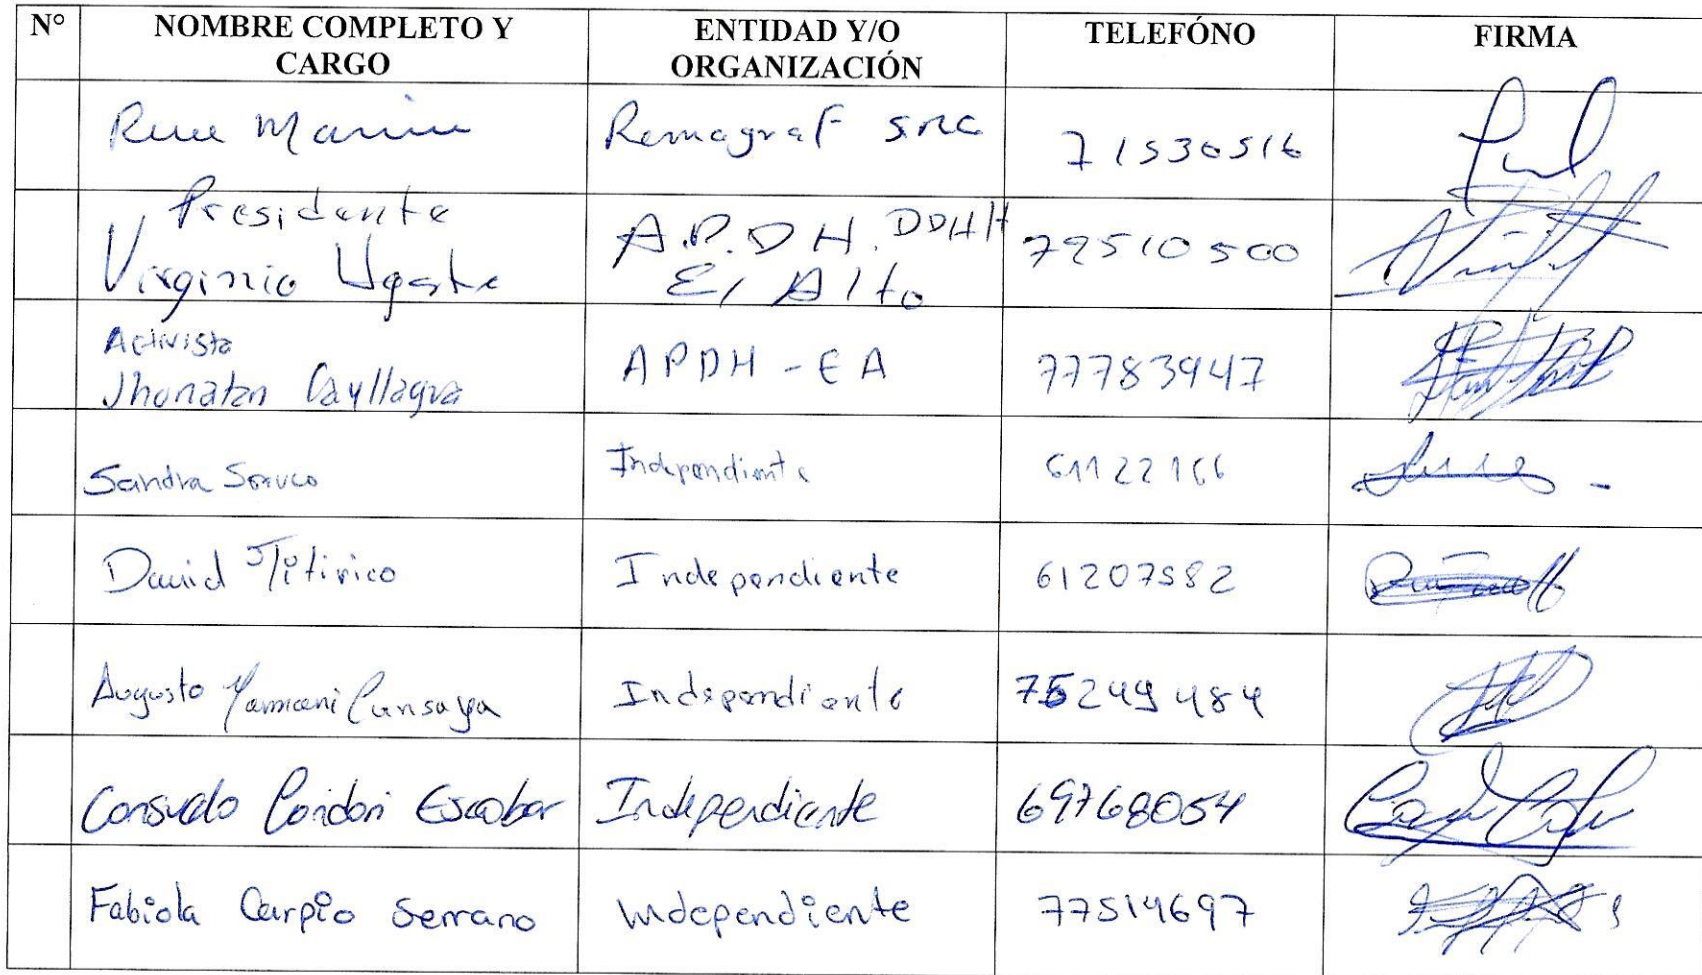 N° NOMBRE COMPLETO Y CARGO ENTIDAD Y/O ORGANIZACIÓN TELEFÓNO FIRMA
Remagraf 71530516
Presidente
Virginio Ugarte A.P.D.H. DDHH El Alto 79510500
Activista
Jhonatan Cayllagua APDH - EA 77783947
Sandra Soruco Independiente 61122166
David Titirico Independiente 61207582
Augusto Mamani Cansaya Independiente 75249484
Consuelo Condori Escobar Independiente 69768054
Fabiola Carpio Serrano Independiente 77514697